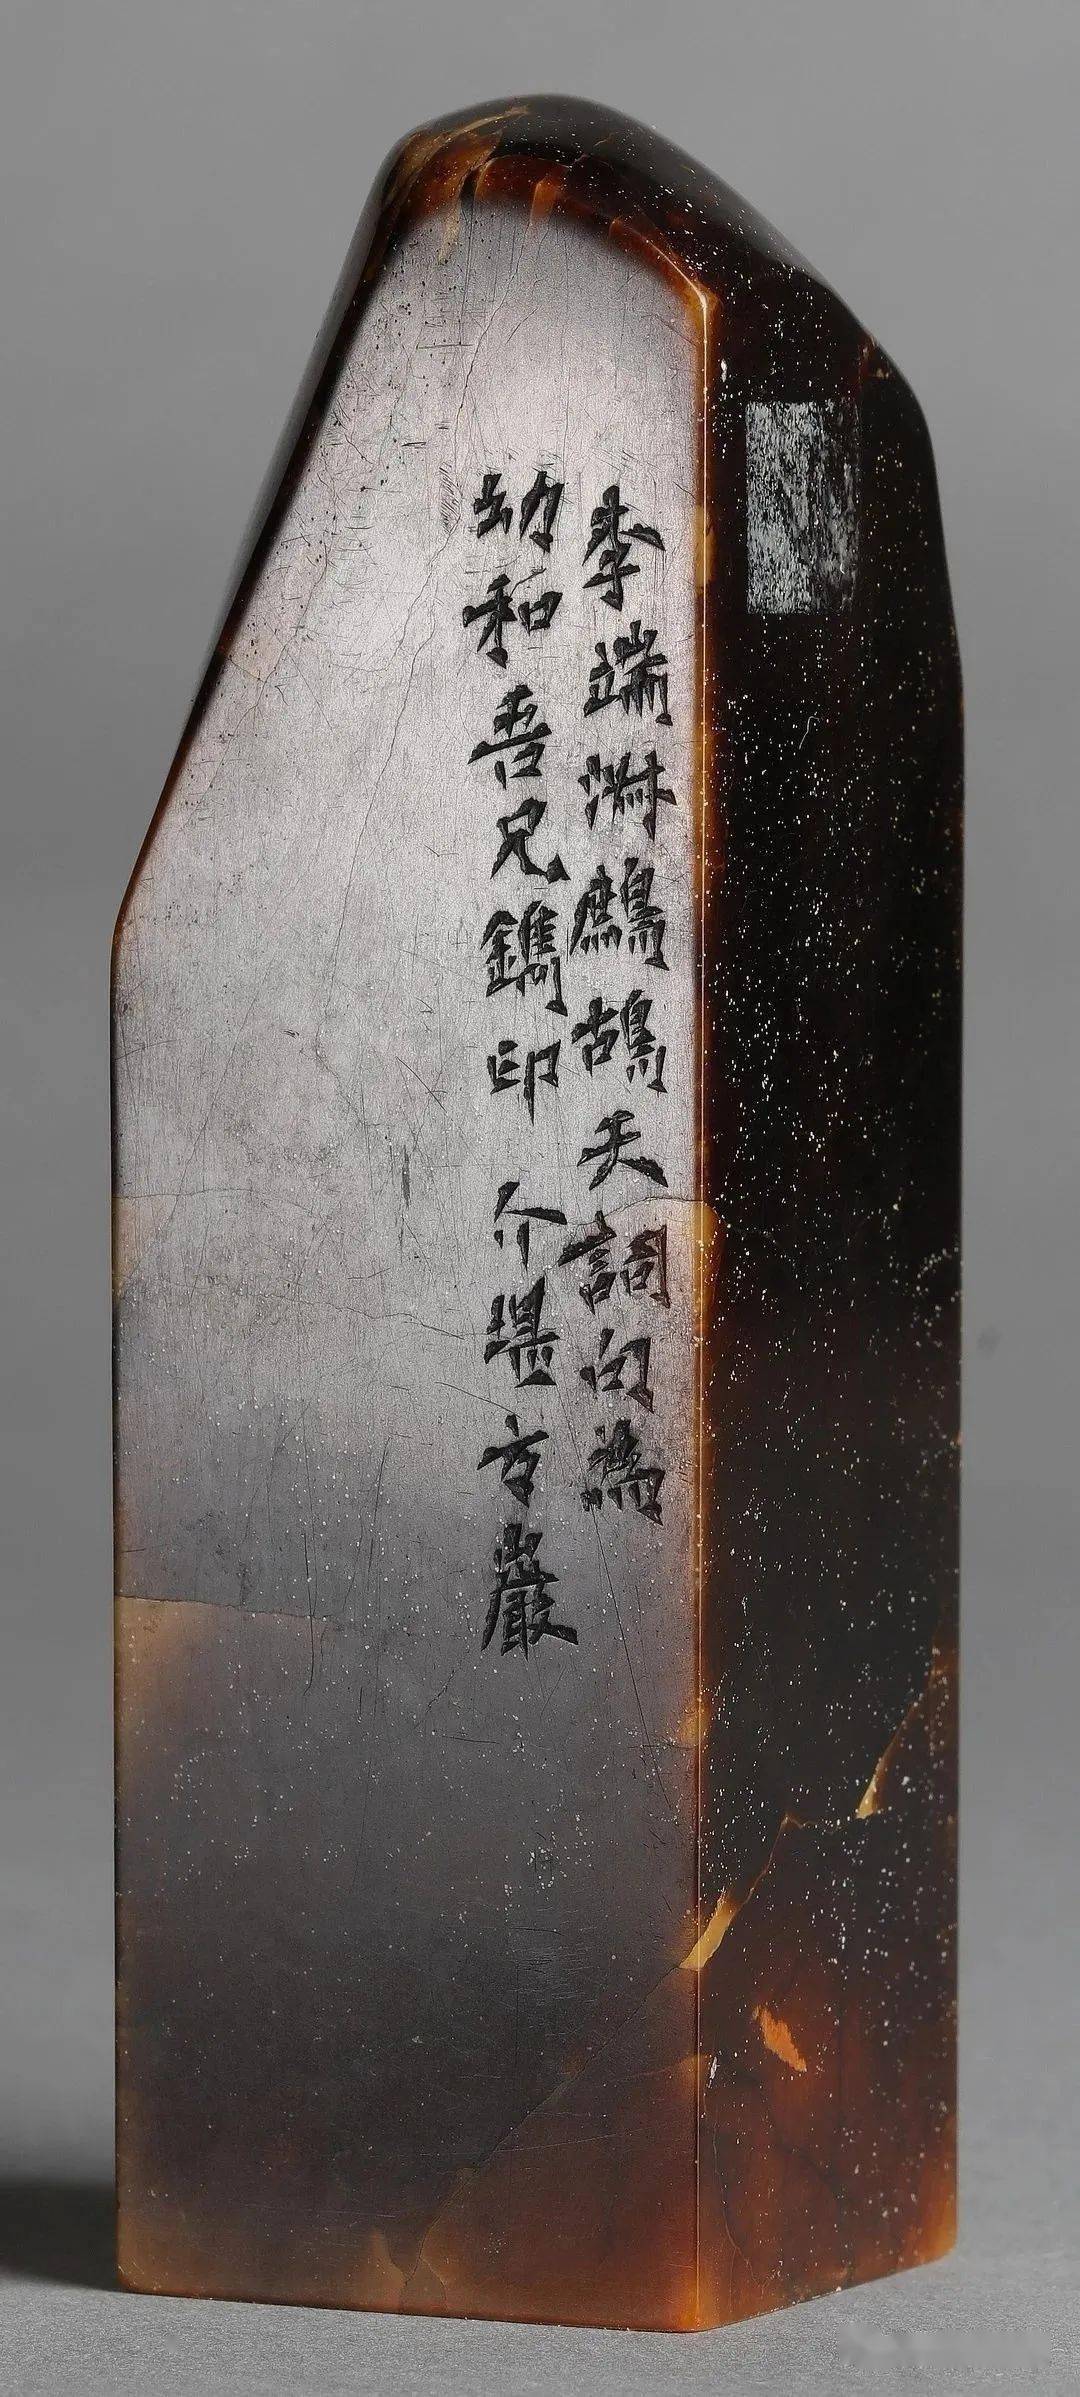 李端叔鷓鴣天詞句為
幼和吾兄鐫印 介堪方巖